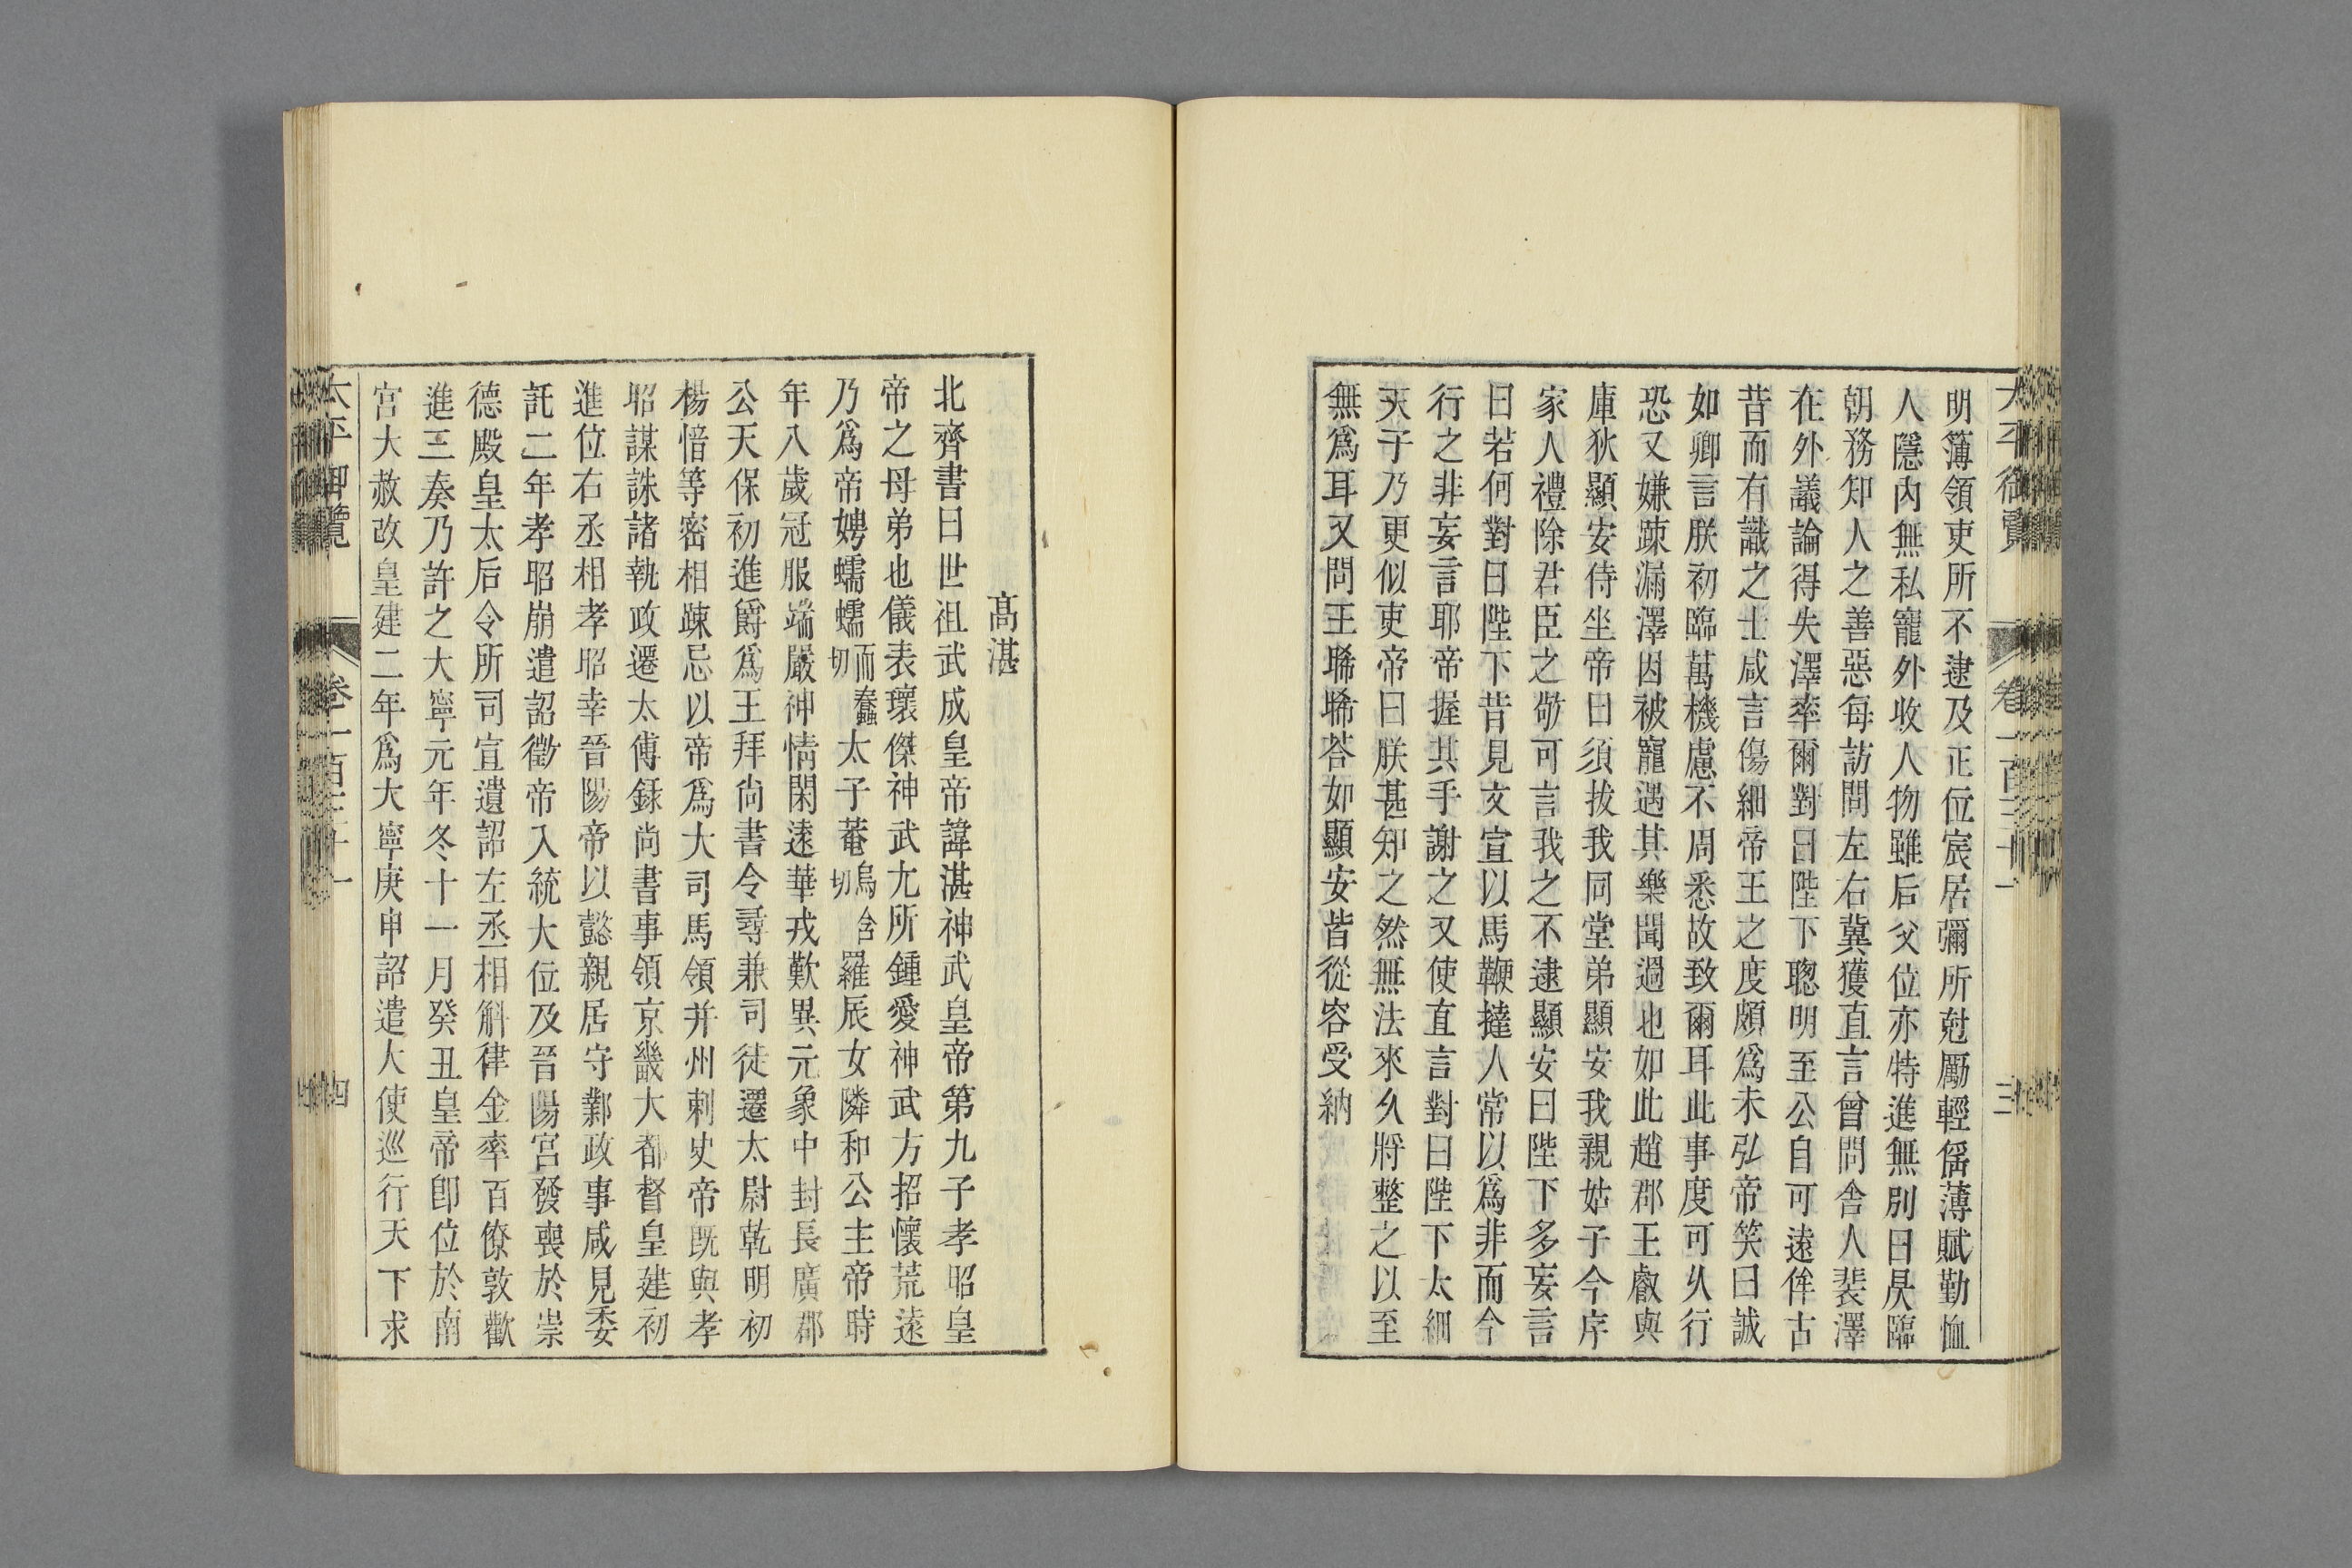 明簿領吏所不逮及正位宸居彌所尅厲輕徭薄賦勤恤
人隱內無私寵外收人物雖后父位亦特進無別日昃臨
朝務知人之善惡每訪問左右冀獲直言曾問舍人裴澤
在外議論得失澤率爾對曰陛下聰明至公自可遠侔古
昔而有識之士咸言傷細帝王之度頗爲未弘帝笑曰誠
如卿言朕初臨萬機慮不周悉故致爾耳此事度可久行
恐又嫌疎漏澤因被寵遇其樂聞過也如此趙郡王叡與
庫狄顯安侍坐帝曰須拔我同堂弟顯安我親姑子今序
家人禮除君臣之敬可言我之不逮顯安曰陛下多妄言
曰若何對曰陛下昔見文宣以馬鞭撻人常以爲非而今
行之非妄言耶帝握其手謝之又使直言對曰陛下太細
天子乃更似吏帝曰朕甚知之然無法來久將整之以至
無爲耳又問王晞晞荅如顯安皆從容受納
高湛
北齊書曰世祖武成皇帝諱湛神武皇帝第九子孝昭皇
帝之母弟也儀表瓌傑神武尤所鍾愛神武方招懷荒遠
乃爲帝娉蠕蠕而蠢切太子菴烏含切羅辰女隣和公主帝時
年八歲冠服端嚴神情閑遠華戎歎異元象中封長廣郡
公天保初進爵爲王拜尚書令尋兼司徒遷太尉乾明初
楊愔等密相踈忌以帝爲大司馬領并州刺史帝既與孝
昭謀誅諸執政遷太傅錄尚書事領京畿大都督皇建初
進位右丞相孝昭幸晉陽帝以懿親居守鄴政事咸見委
託二年孝昭崩遺詔徵帝入統大位及晉陽宮發喪於崇
德殿皇太后令所司宣遺詔左丞相斛律金率百僚敦勸
進三奏乃許之大寧元年冬十一月癸丑皇帝卽位於南
宮大赦改皇建二年爲大寧庚申詔遣大使巡行天下求
太平御覽 卷一百三十一 四